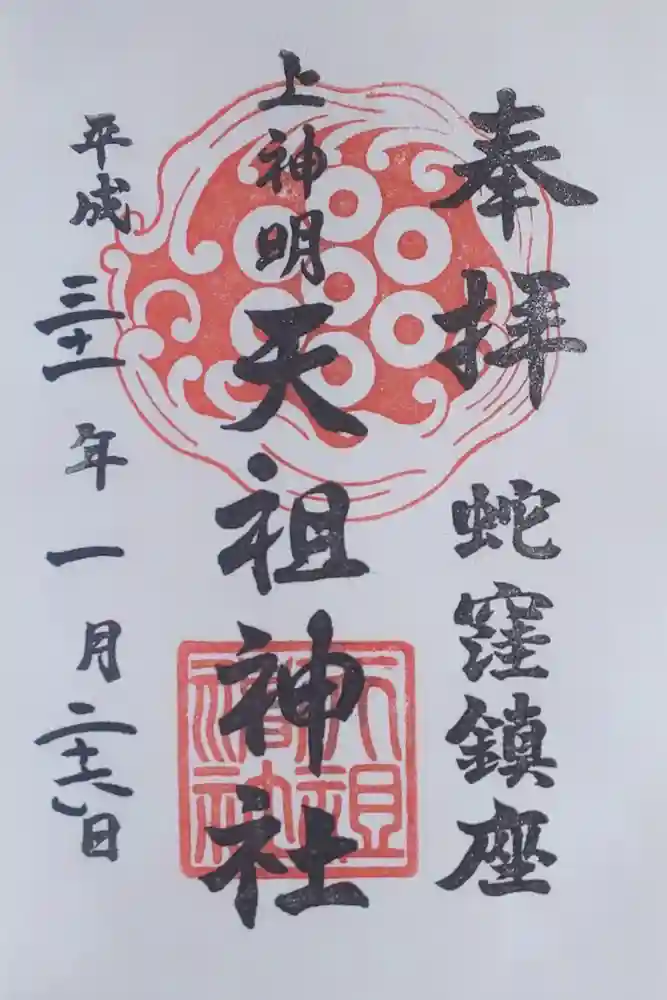 奉拝 蛇窪鎮座
上神明天祖神社
平成三十一年一月二十六日